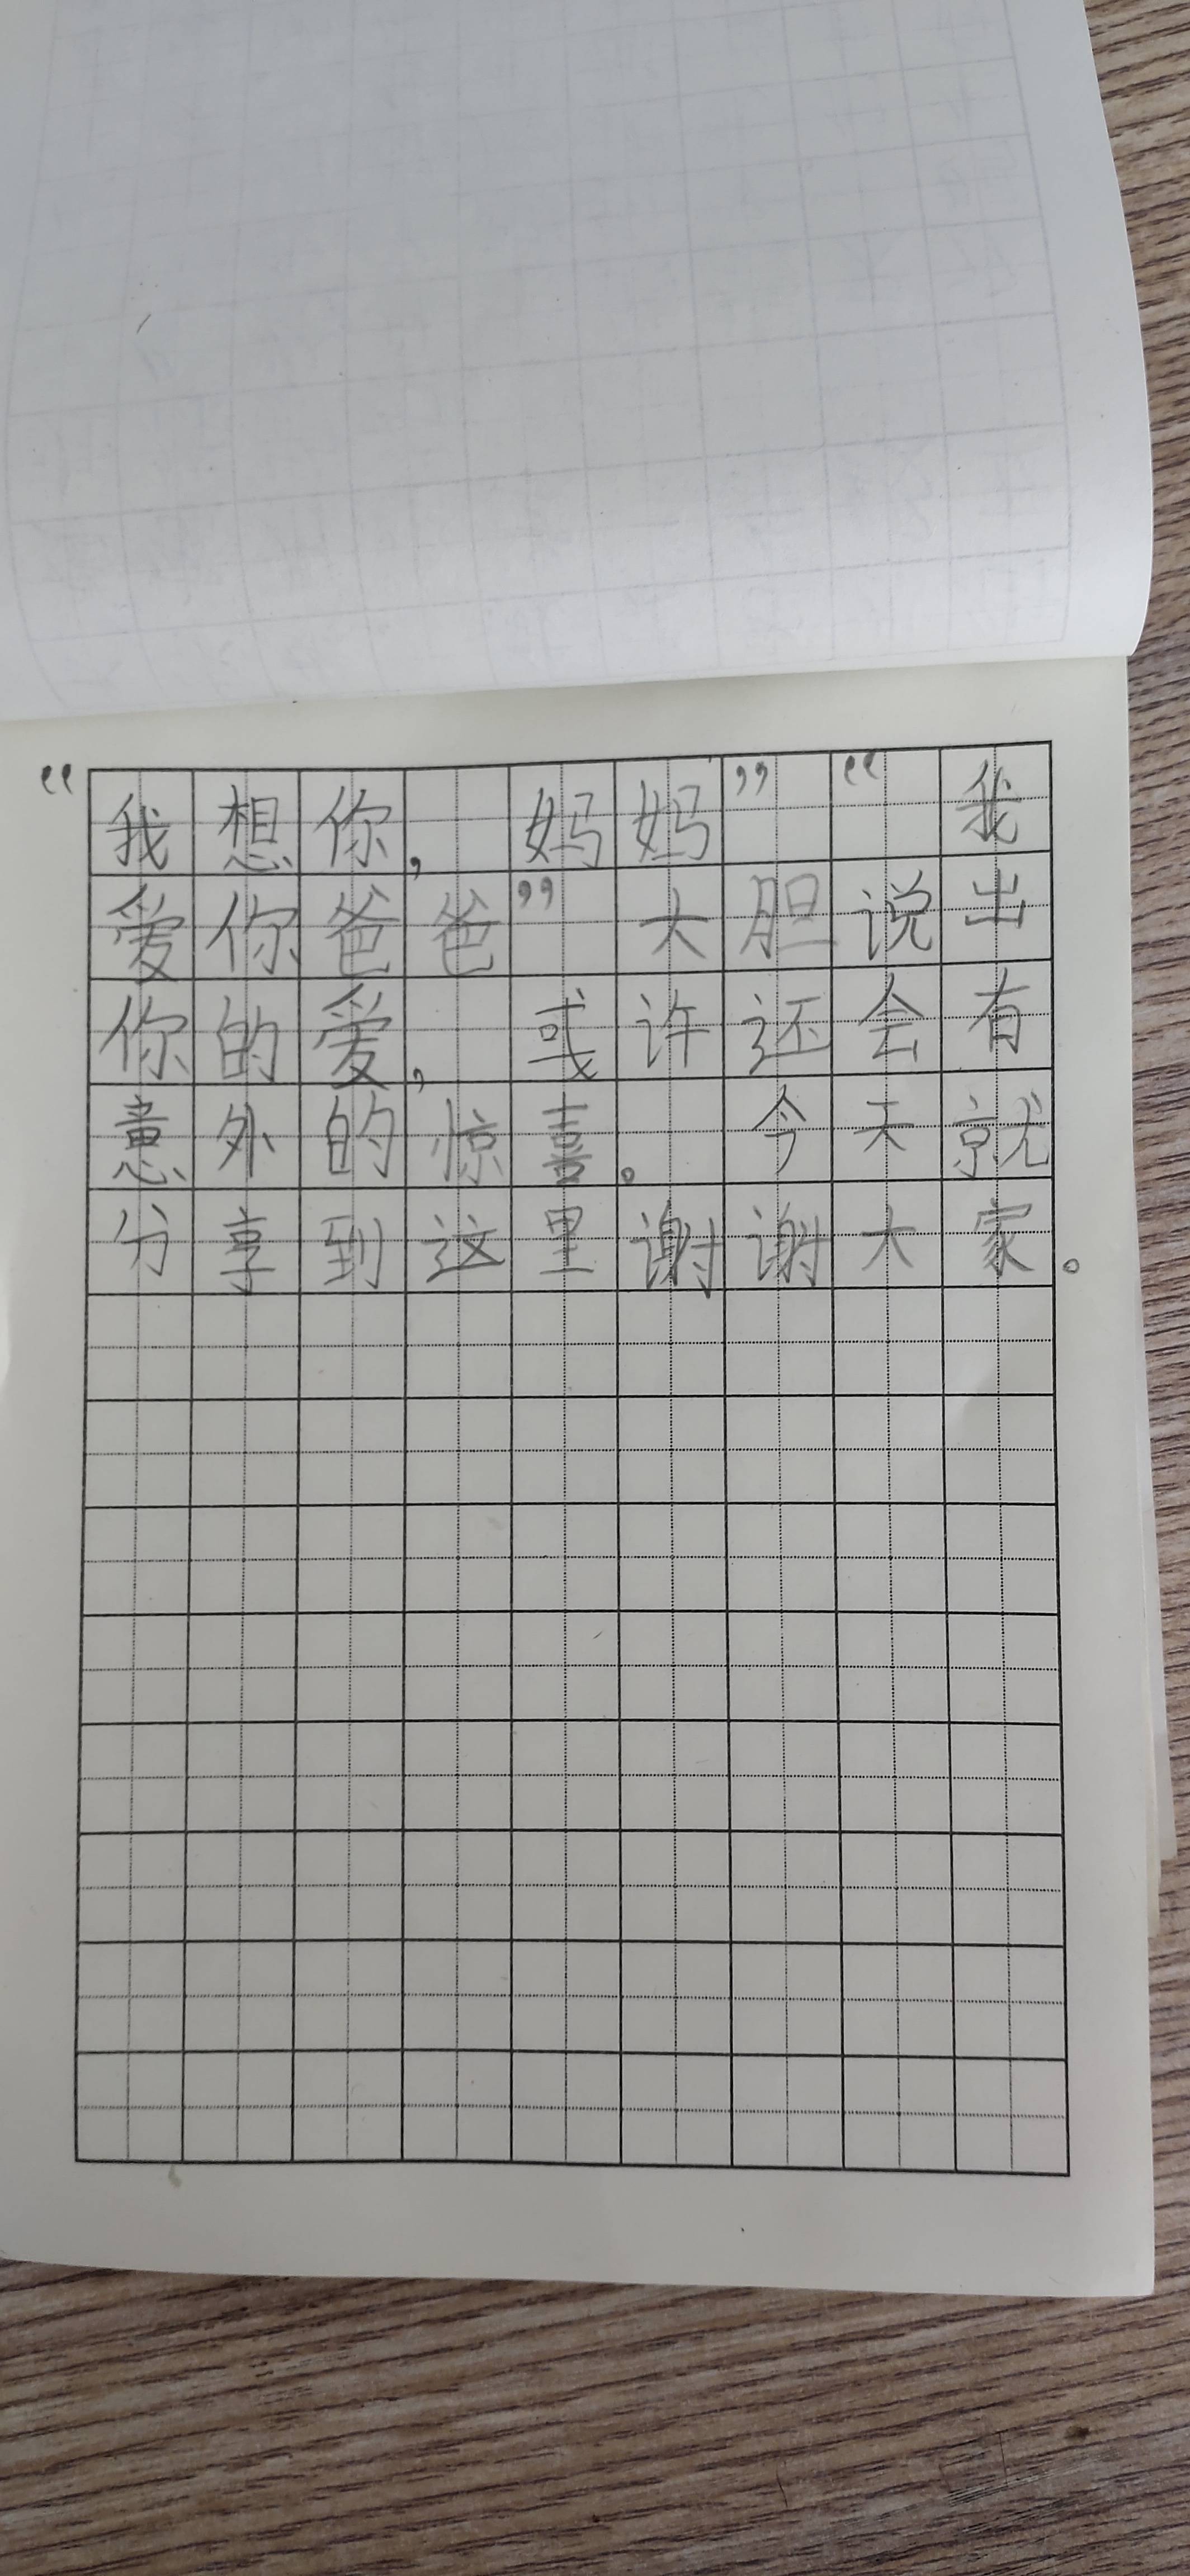 “我想你，妈妈”“我
爱你爸爸”大胆说出
你的爱，或许还会有
意外的惊喜。今天就
分享到这里谢谢大家。